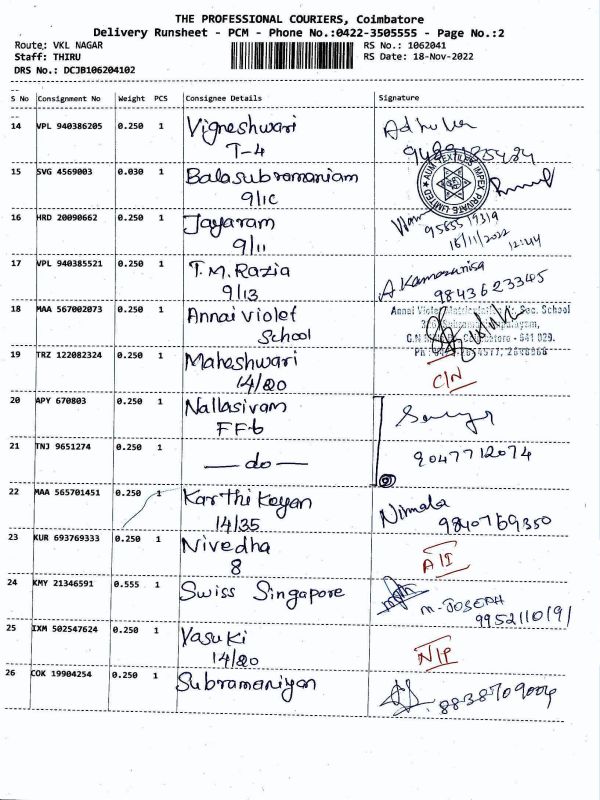 THE PROFESSIONAL COURIERS, Coimbatore
Delivery Runsheet - PCM - Phone No.:0422-3505555 - Page No.:2
Route: VKL NAGAR RS No.: 1062041
Staff: THIRU RS Date: 18-Nov-2022
DRS No.: DCJB106204102
S No Consignment No Weight PCS Consignee Details Signature
14 VPL 940386205 0.250 1 Vigneshwari
T-4
15 SVG 4569003 0.030 1 Balasubramaniam
9/1C
AUM TEXTILES IMPEX PRIVATE LIMITED
16 HRD 20090662 0.250 1 Jayaram
9/11
9565519319
16/11/2022
12:44
17 VPL 940385521 0.250 1 T.M. Razia A Kamarunisa
9/13 9843623345
18 MAA 567002073 0.250 1 Annai violet Annai Violet Sec. School
School
641 029.
19 TRZ 122082324 0.250 1 Maheshwari
14/20 C/N
20 APY 670803 0.250 1 Nallasivam
FF6
21 TNJ 9651274 0.250 1 — do — 9047712074
22 MAA 565701451 0.250 1 Karthikeyan Nirmala
14/35 9840769350
23 KUR 693769333 0.250 1 Nivedha
8 A/I
24 KMY 21346591 0.555 1 Swiss Singapore M. JOSEPH
9952110191
25 IXM 502547624 0.250 1 Vasuki
14/20 N/P
26 COK 19904254 0.250 1 Subramaniyan 8838709004